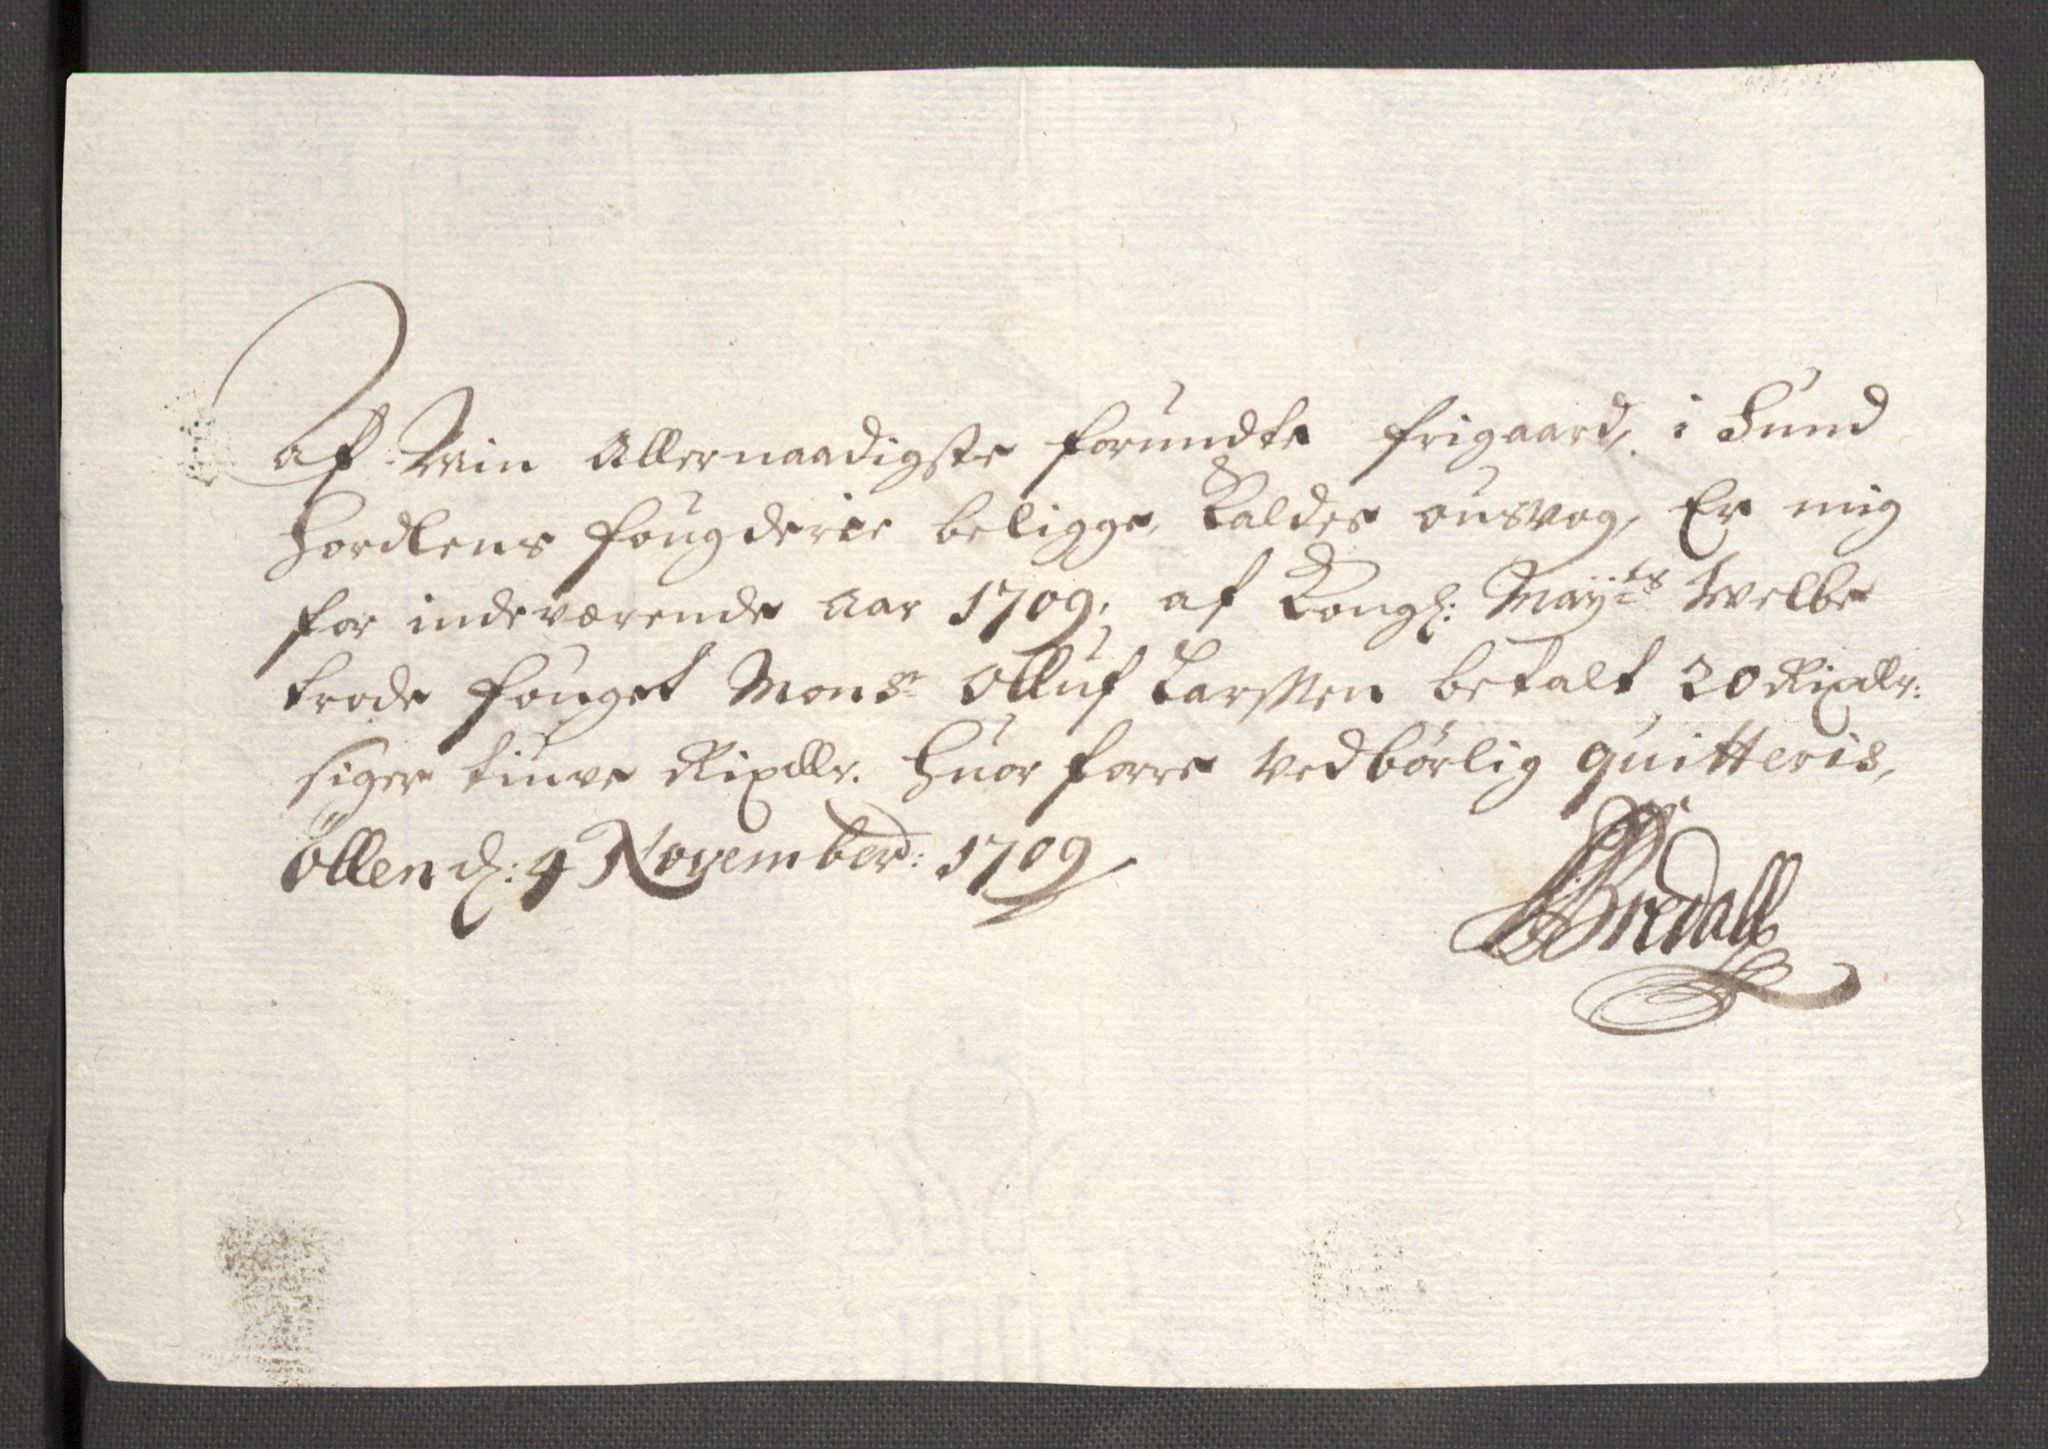 Af Min Allernaadigste forundte frigaard, i Sund
Hordlens fougderie beligge, Kaldes onsvog, Er mig
for indeværende Aar 1709, af Kongl: May:ts Welbe
trode fouget Monsr Olluf Larssen betalt 20 Rixdlr:
siger tiuve Rixdlr. Huor forre Vedbørlig quitteris,
Ollen d: 4 November: 1709
Bredall